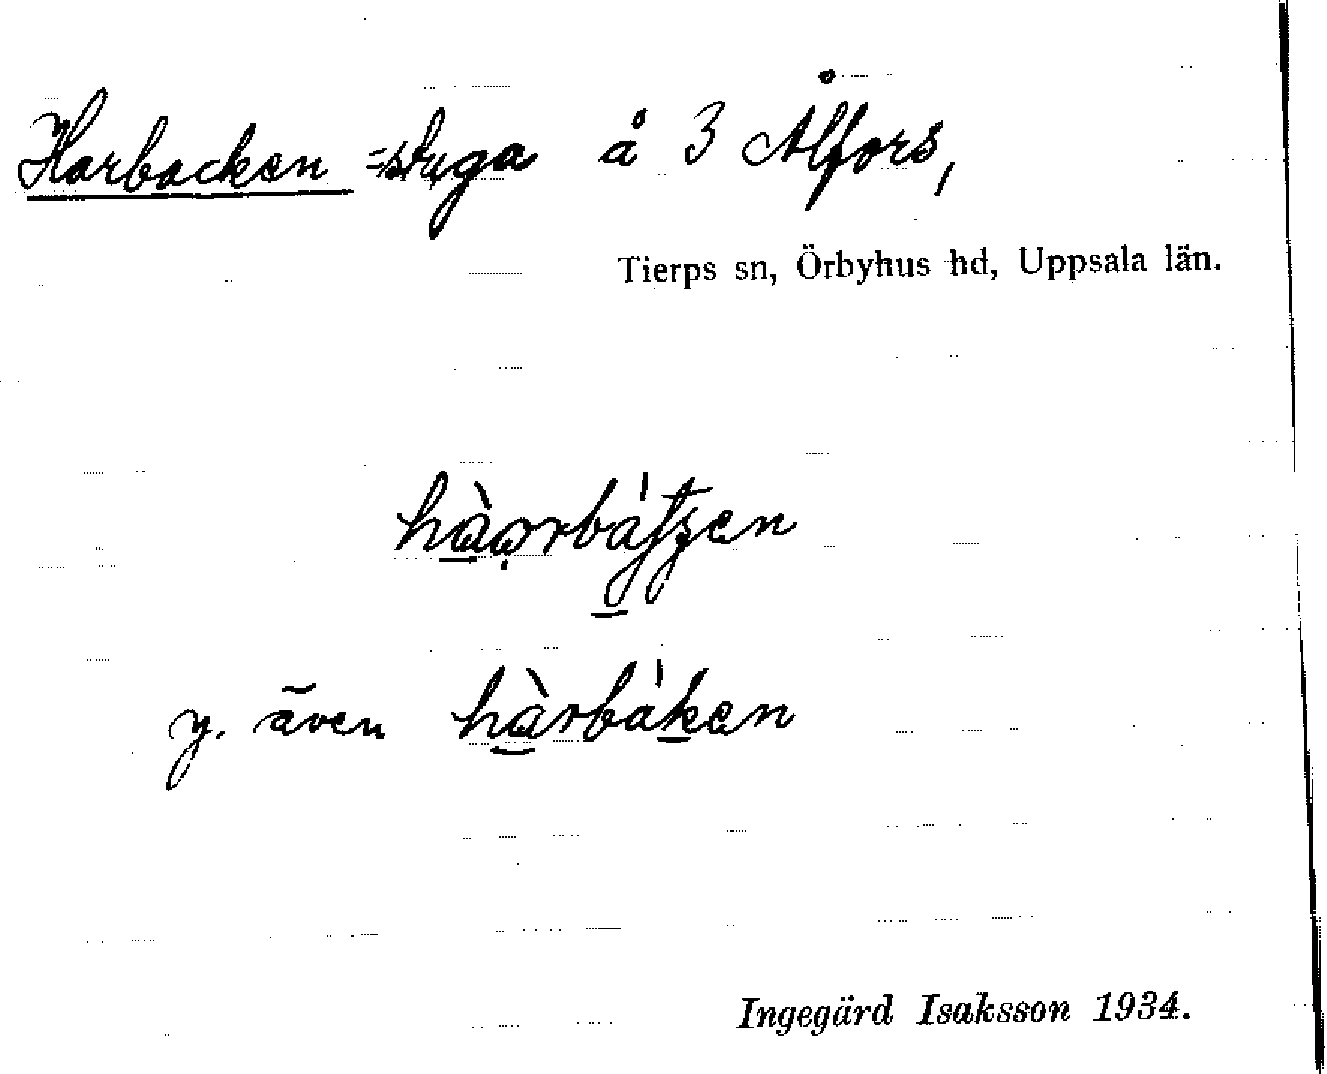 Harbacken =stuga å 3 Ålfors,
Tierps sn, Örbyhus hd, Uppsala län.
hàǫrbátʒen
y. även hàrbáken
Ingegärd Isaksson 1934.